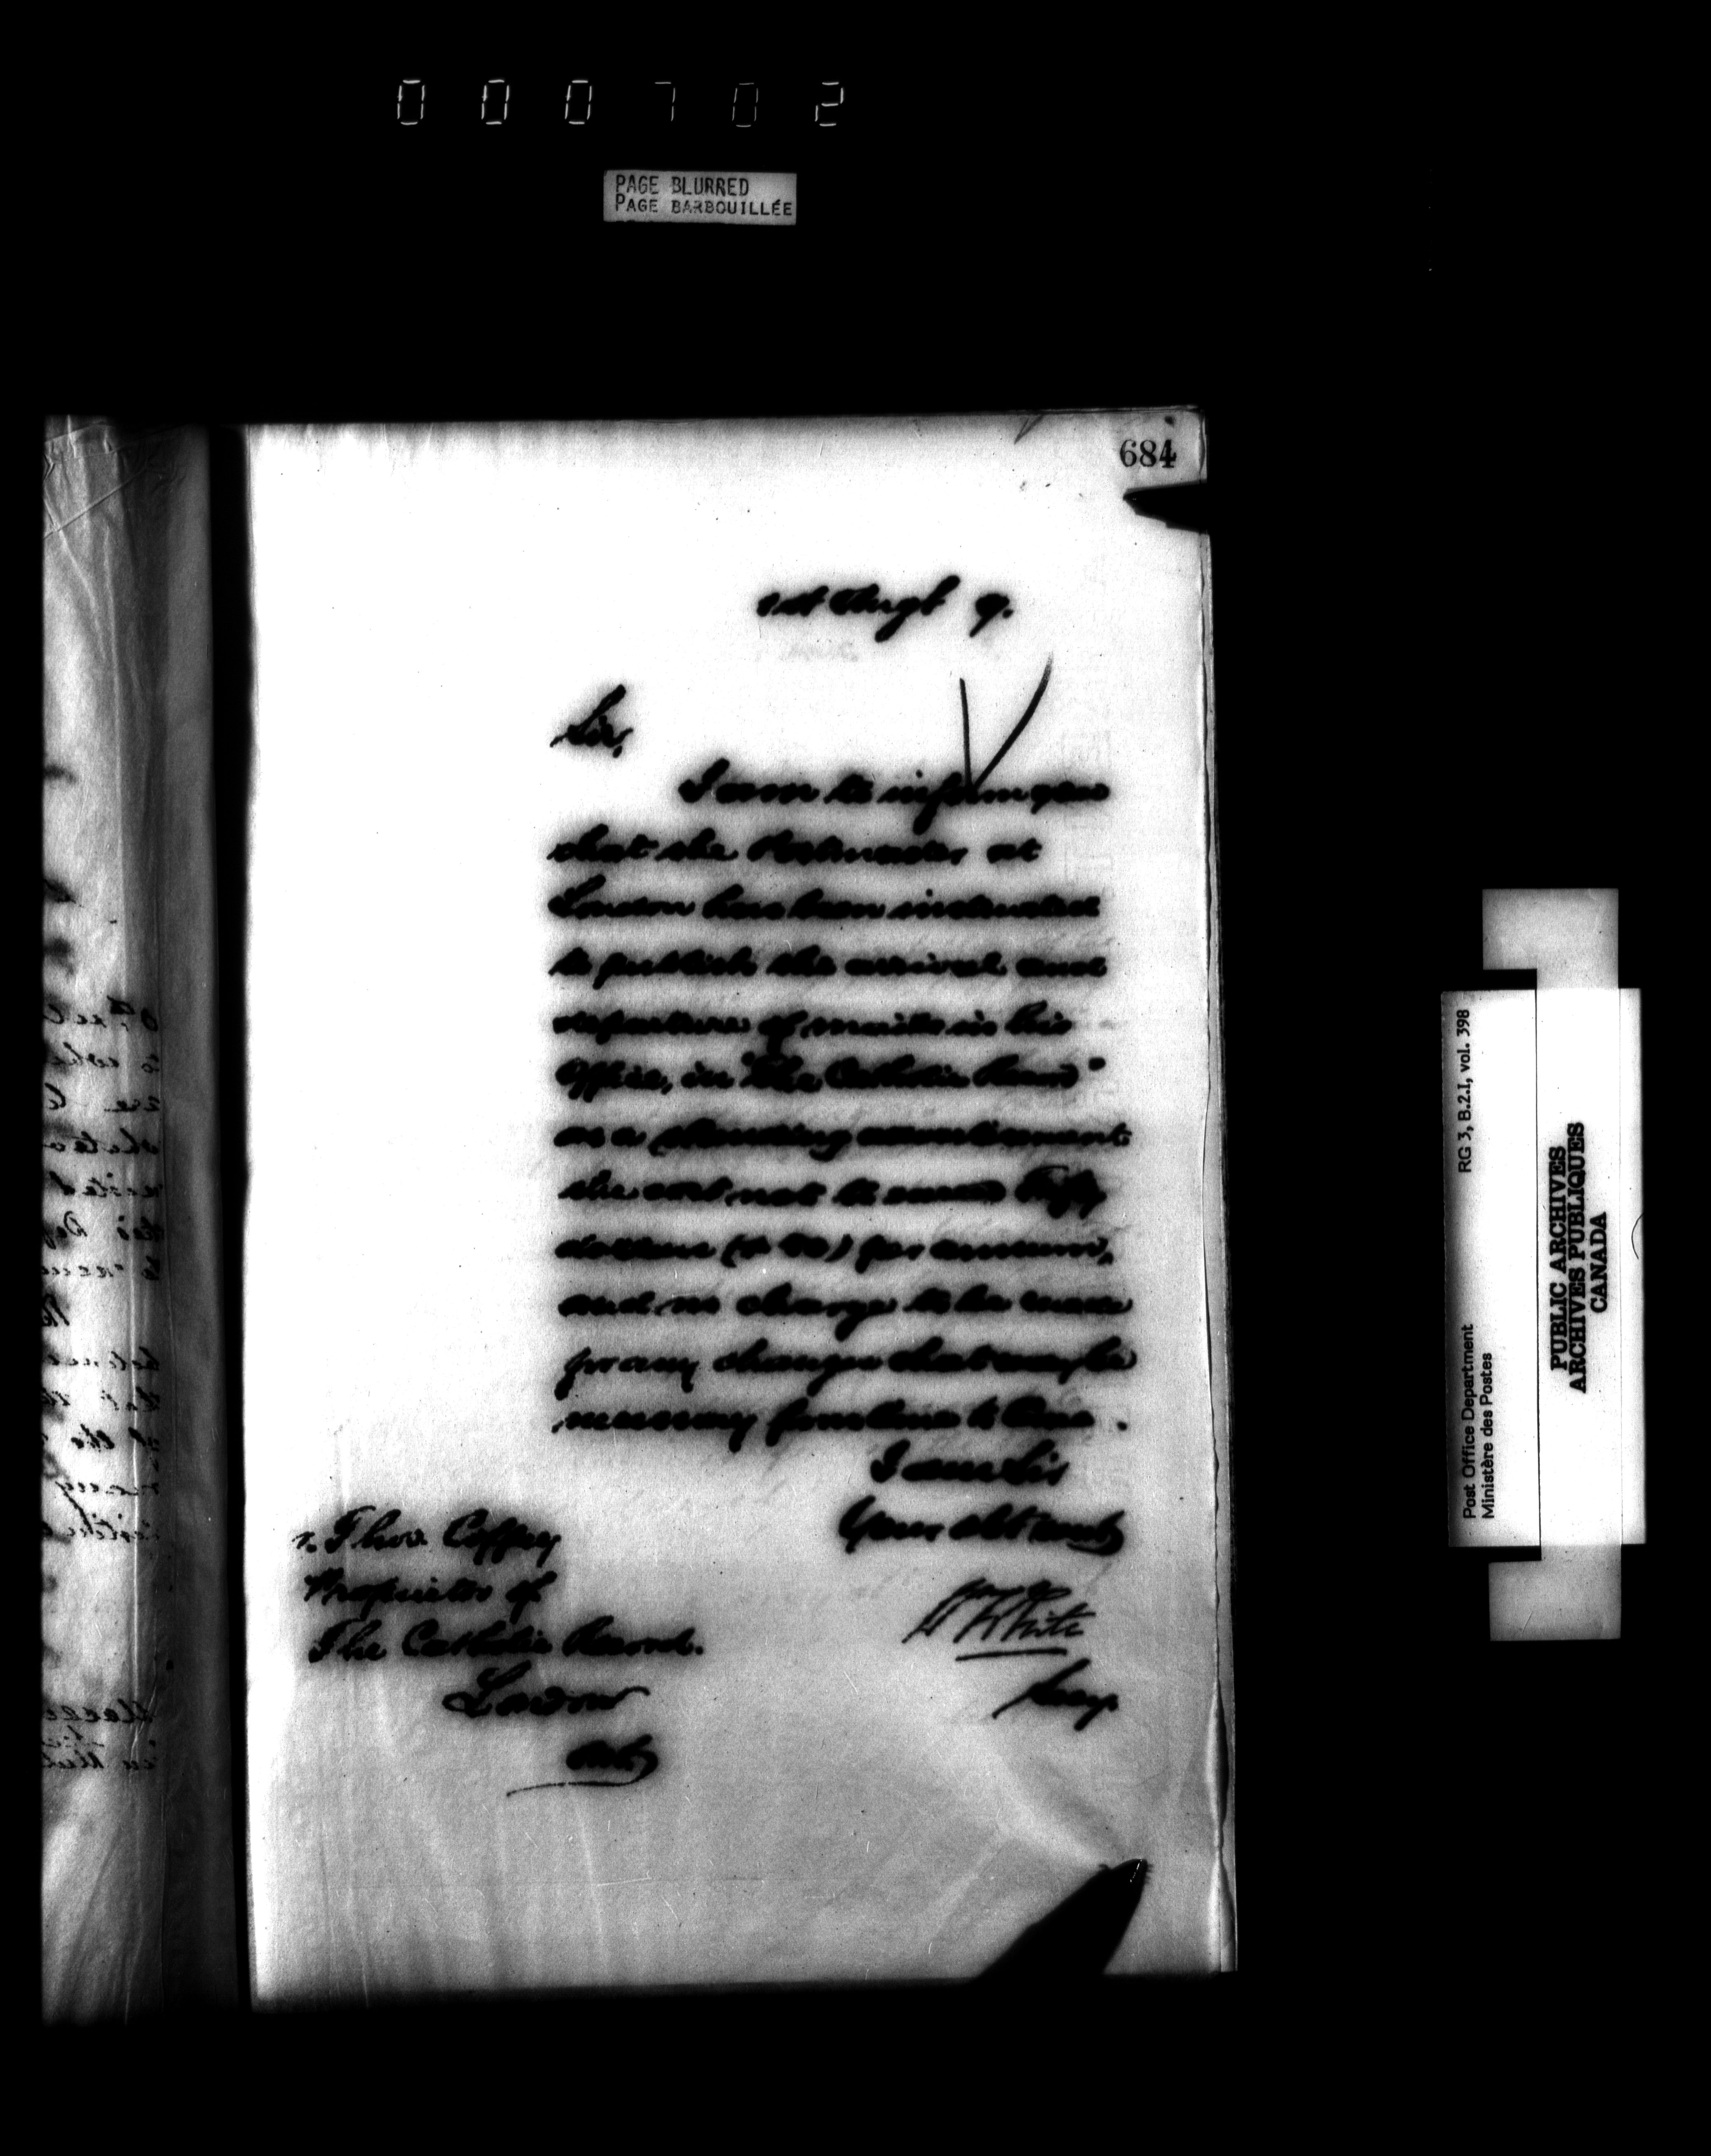 000702
PAGE BLURRED
PAGE BARBOUILLÉE
684
1st Augt 9.
Sir,
I am to inform you
that the Postmaster at
London has been instructed
to publish the arrival and
departure of mails in his
Office, in "The Catholic Record"
as a standing advertisement
the cost not to exceed Fifty
dollars ($50) per annum,
and no charge to be made
for any changes that may be
necessary from time to time.
I am Sir
Your obt servt
W White
Secy.
r. Thos. Coffey
Proprietor of
The Catholic Record.
London
Ont.
Post Office Department
Ministère des Postes
RG 3, B.2.1, vol. 398
PUBLIC ARCHIVES
ARCHIVES PUBLIQUES
CANADA